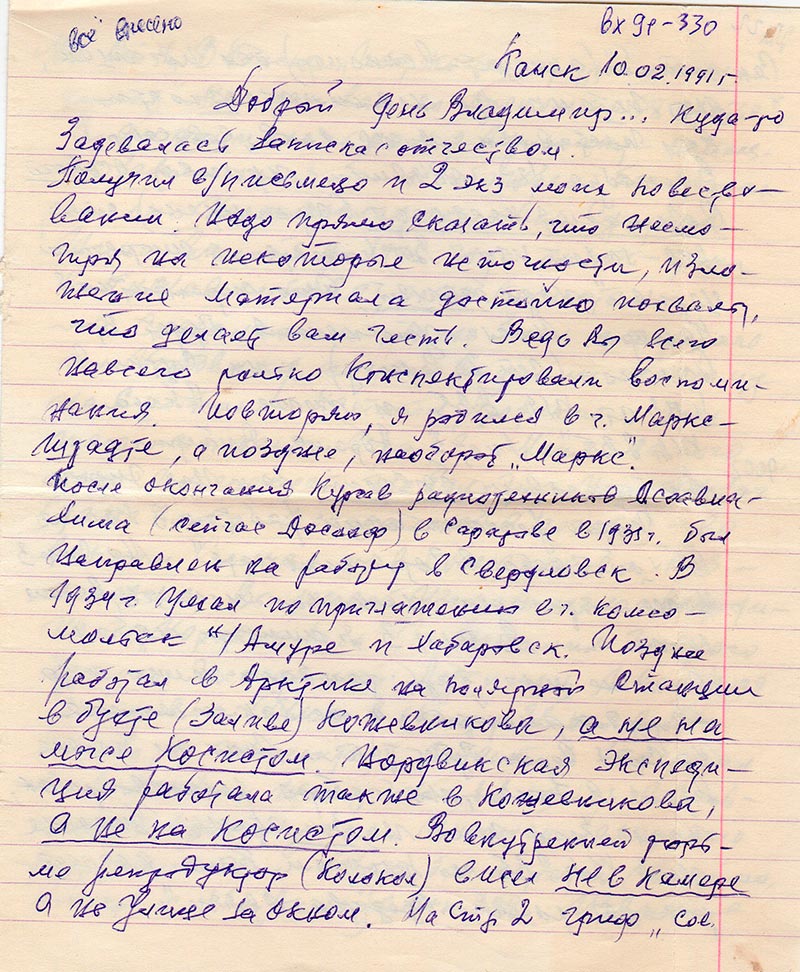 всё внесено
вх 91-330
Канск 10.02.1991 г.
Добрый День Владимир... Куда-то
Задевалась Записка с отчеством.
Получил в/письмецо и 2 экз моих повество-
вании. Надо прямо сказать, что несмо-
тря на некоторые неточности, изло-
жение материала достойно похвалы,
что делает вам честь. Ведь Вы всего
навсего только Конспектировали воспоми-
нания. Повторяю, я родился в г. Маркс-
штадте, а позднее, наоборот „Маркс".
После окончания Курсов радиотехников Осоавиа-
хима (сейчас Досааф) в Саратове в 1931 г. был
Направлен на работу в Свердловск. В
1934 г. Уехал по приглашению в г. Комсо-
мольск н/Амуре и Хабаровск. Позднее
работал в Арктике на полярной Станции
в бухте (Заливе) Кожевникова, а не на
мысе Косистом. Нордвикская Экспеди-
ция работала также в Кожевникова,
а не на Косистом. Во внутренней тюрь-
ме репродуктор (Колокол) висел не в Камере
а на Улице за Окном. На Стр 2 гриф „Сос.